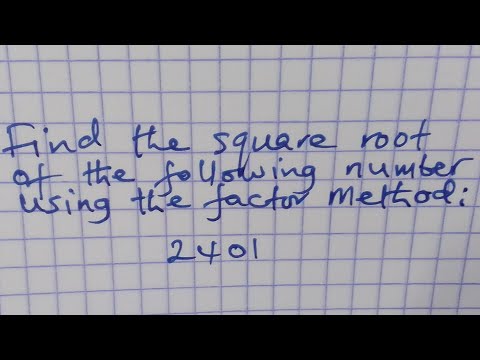 Find the square root
of the following number
using the factor method:
2401